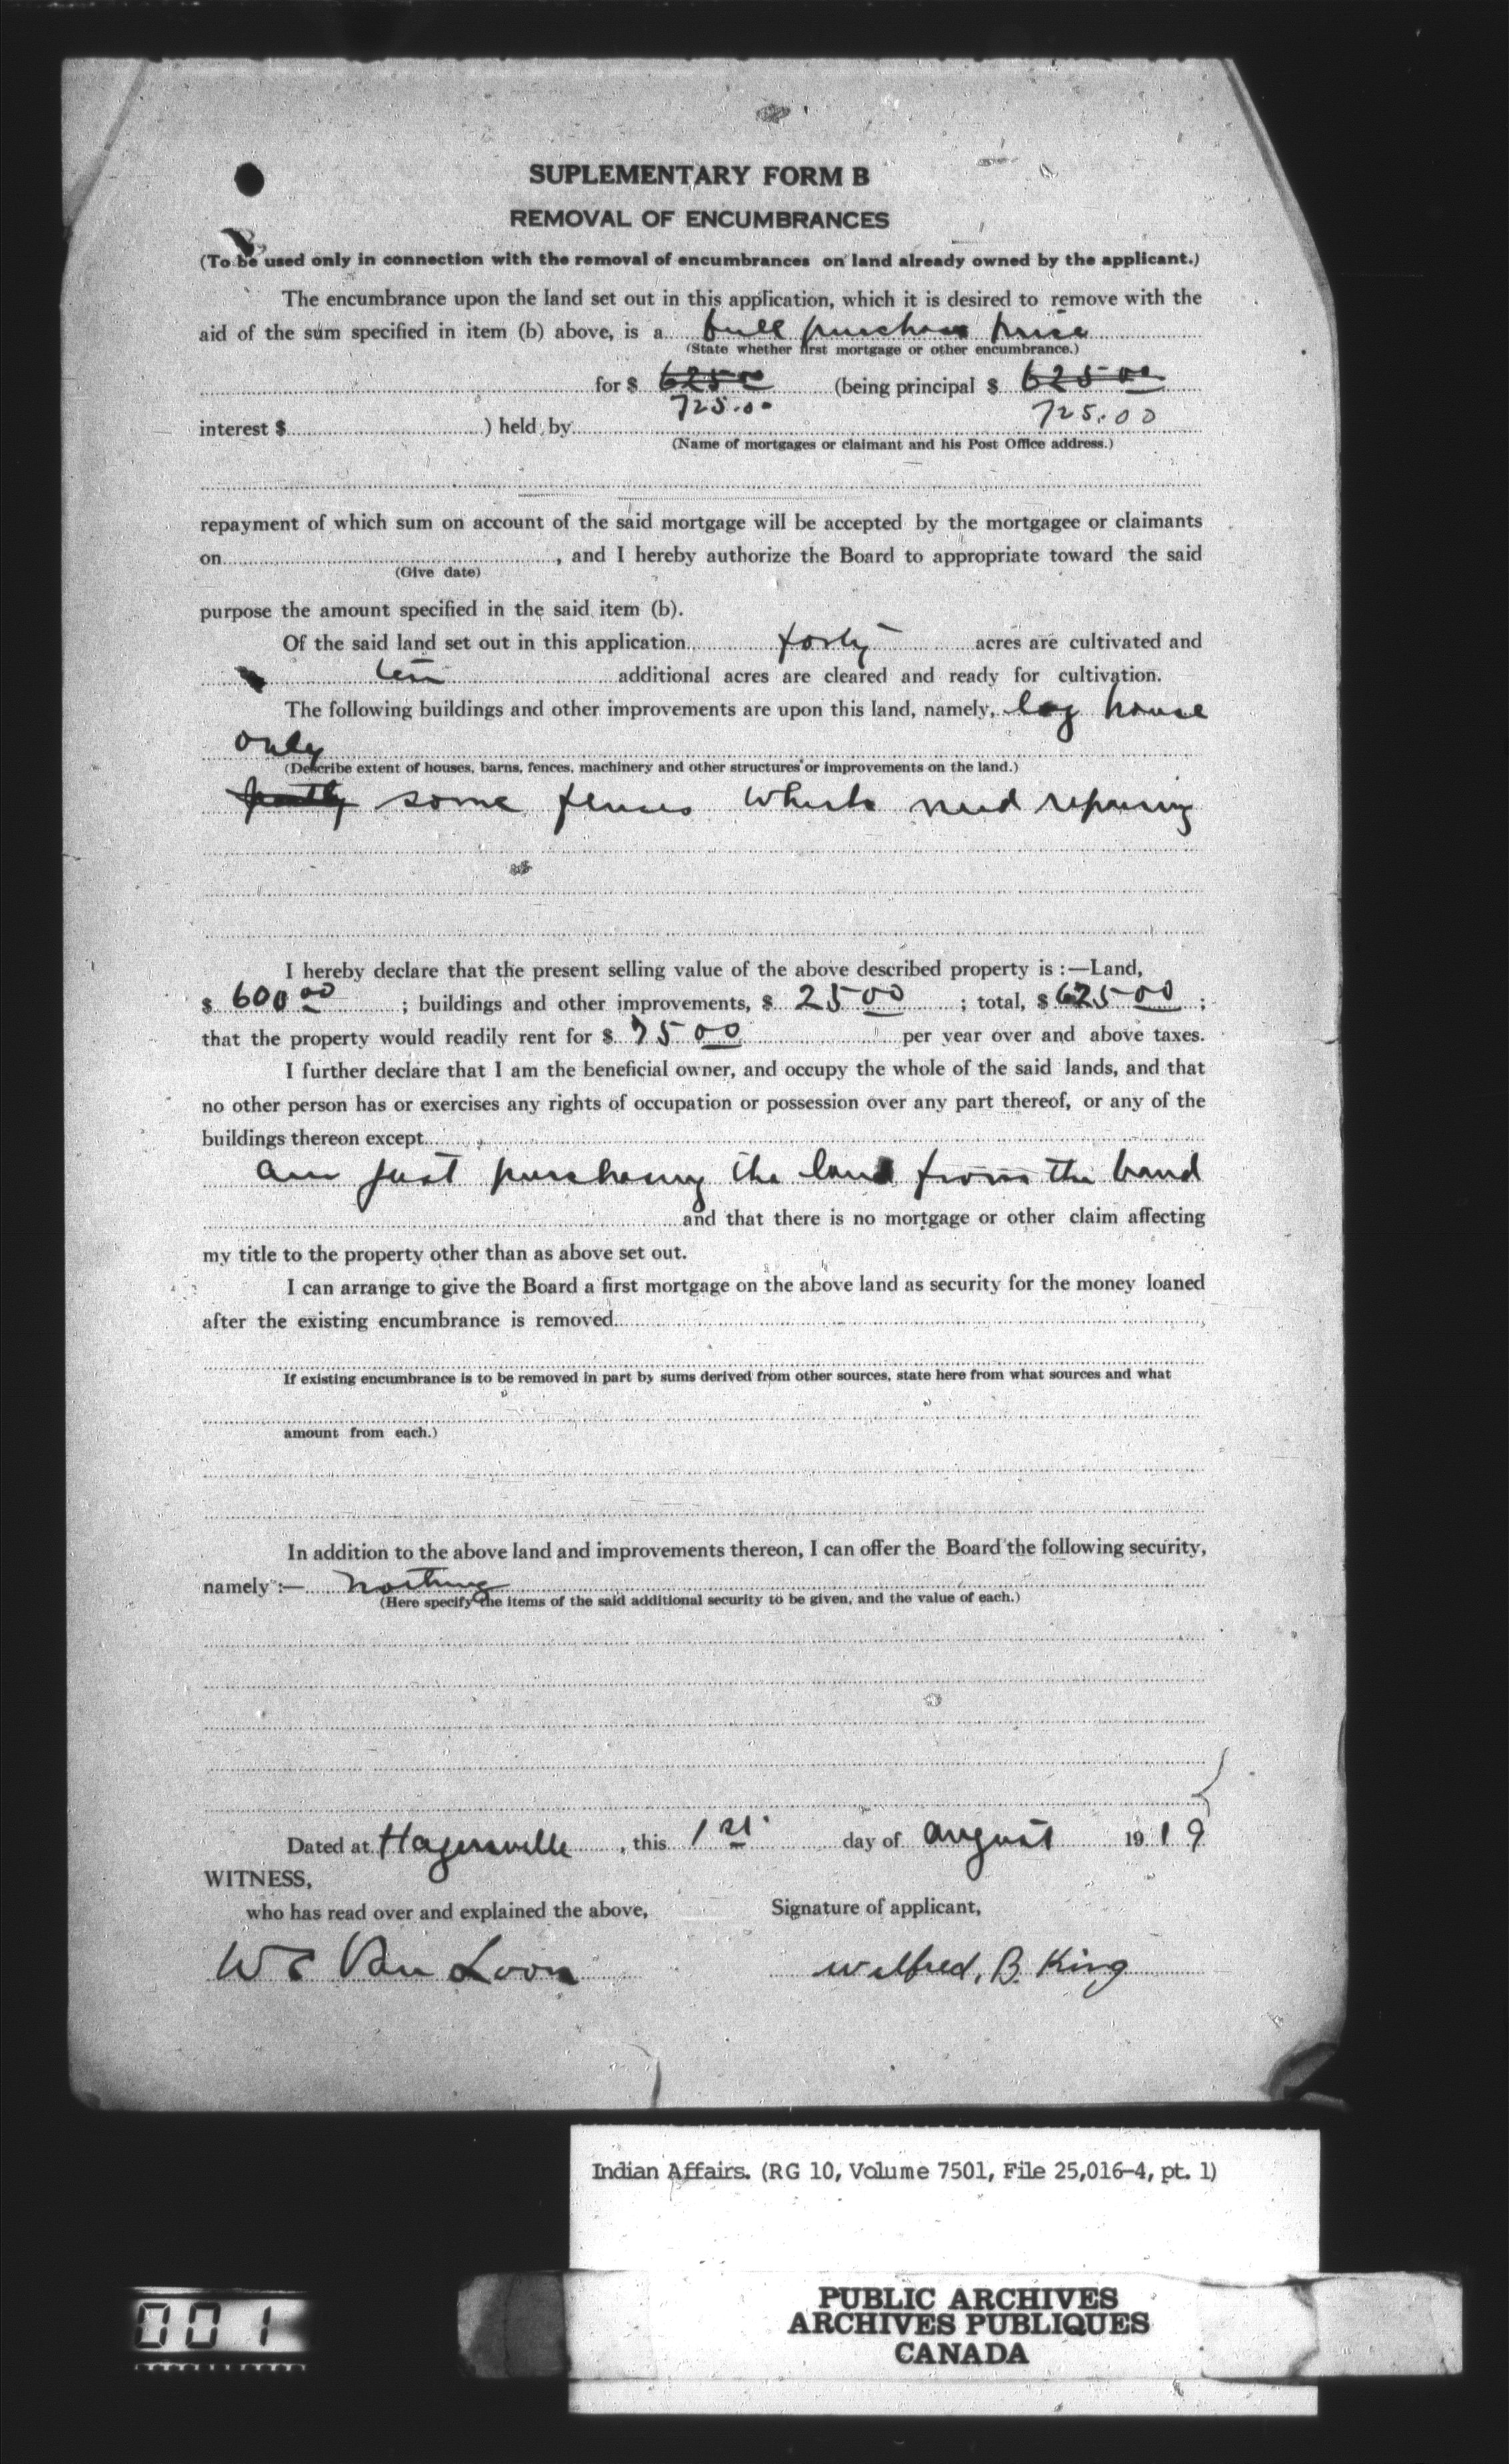 SUPLEMENTARY FORM B
REMOVAL OF ENCUMBRANCES
(To be used only in connection with the removal of encumbrances on land already owned by the applicant.)
The encumbrance upon the land set out in this application, which it is desired to remove with the
aid of the sum specified in item (b) above, is a full purchase price
(State whether first mortgage or other encumbrance.)
for $ 625 00 (being principal $ 625 00
725.00 725.00
interest $ ) held by
(Name of mortgages or claimant and his Post Office address.)
repayment of which sum on account of the said mortgage will be accepted by the mortgagee or claimants
on , and I hereby authorize the Board to appropriate toward the said
(Give date)
purpose the amount specified in the said item (b).
Of the said land set out in this application forty acres are cultivated and
ten additional acres are cleared and ready for cultivation.
The following buildings and other improvements are upon this land, namely, log house
only
(Describe extent of houses, barns, fences, machinery and other structures or improvements on the land.)
partly some fences which need repairing
I hereby declare that the present selling value of the above described property is :—Land,
$ 600 00 ; buildings and other improvements, $ 25 00 ; total, $ 625 00 ;
that the property would readily rent for $ 75 00 per year over and above taxes.
I further declare that I am the beneficial owner, and occupy the whole of the said lands, and that
no other person has or exercises any rights of occupation or possession over any part thereof, or any of the
buildings thereon except
am just purchasing the land from the band
and that there is no mortgage or other claim affecting
my title to the property other than as above set out.
I can arrange to give the Board a first mortgage on the above land as security for the money loaned
after the existing encumbrance is removed
If existing encumbrance is to be removed in part by sums derived from other sources, state here from what sources and what
amount from each.)
In addition to the above land and improvements thereon, I can offer the Board the following security,
namely :— nothing
(Here specify the items of the said additional security to be given, and the value of each.)
Dated at Hagersville , this 1st day of august 1919
WITNESS,
who has read over and explained the above, Signature of applicant,
W E Van Loon Wilfred, B. King
Indian Affairs. (RG 10, Volume 7501, File 25,016-4, pt. 1)
PUBLIC ARCHIVES
ARCHIVES PUBLIQUES
CANADA
001